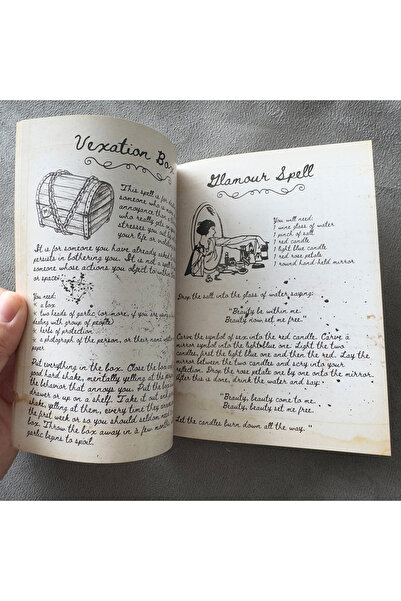 Vexation Box
This spell is for
someone who is more
annoyance than a
who really gets
stresses you out
your life or
It is for someone you have already asked
persists in bothering you. It is not a spell
someone whose actions you object to
or space.
You need:
x a box
x two heads of garlic (or more, if you are
dealing with group of people)
x herbs of protection
x a photograph of the person, or their name
paper
Put everything in the box. Close the box
good hard shake, mentally yelling at the
the behavior that annoys you. Put the box
drawer or up on a shelf. Take it out and
shake, yelling at them, every time they
the first week or so you should seldom
box. Throw the box away in a few months,
garlic begins to spoil.
Glamour Spell
You will need:
1 wine glass of water
1 pinch of salt
1 red candle
1 light blue candle
1 red rose petals
1 round hand-held mirror
Drop the salt into the glass of water saying:
"Beauty be within me.
Beauty now set me free."
Carve the symbol of sex into the red candle. Carve a
mirror symbol into the light blue one. Light the two
candles, first the light blue one and then the red. Lay the
mirror between the two candles and scry into your
reflection. Drop the rose petals one by one onto the mirror.
After this is done, drink the water and say:
"Beauty, beauty come to me.
Beauty, beauty set me free.
Let the candles burn down all the way. "